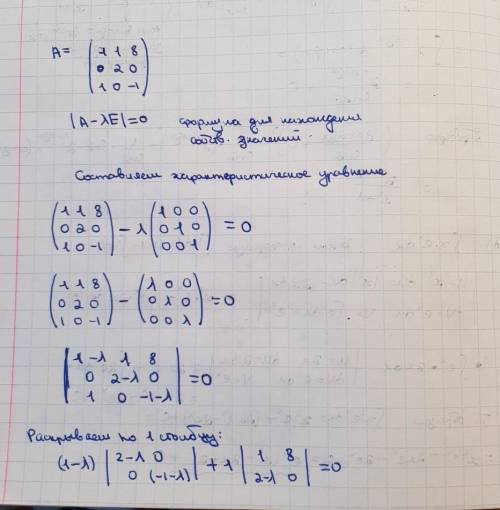 A= (1 1 8
0 2 0
1 0 -1)
|A-λE|=0 формула для нахождения
собств. значений.
Составляем характеристическое уравнение
(1 1 8
0 2 0
1 0 -1) - λ (1 0 0
0 1 0
0 0 1) = 0
(1 1 8
0 2 0
1 0 -1) - (λ 0 0
0 λ 0
0 0 λ) = 0
|1-λ 1 8
0 2-λ 0
1 0 -1-λ| = 0
Раскрываем по 1 столбцу:
(1-λ) |2-λ 0
0 (-1-λ)| + 1 |1 8
2-λ 0| = 0